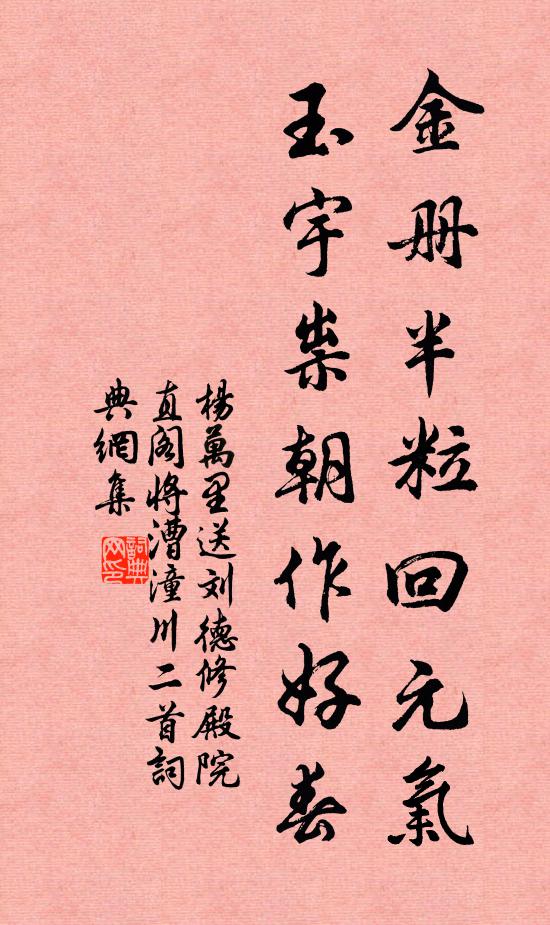 金册半粒回元氣
玉宇崇朝作好春
楊萬里送刘德修殿院
直阁將漕潼川二首詞
典網集
詞典网印